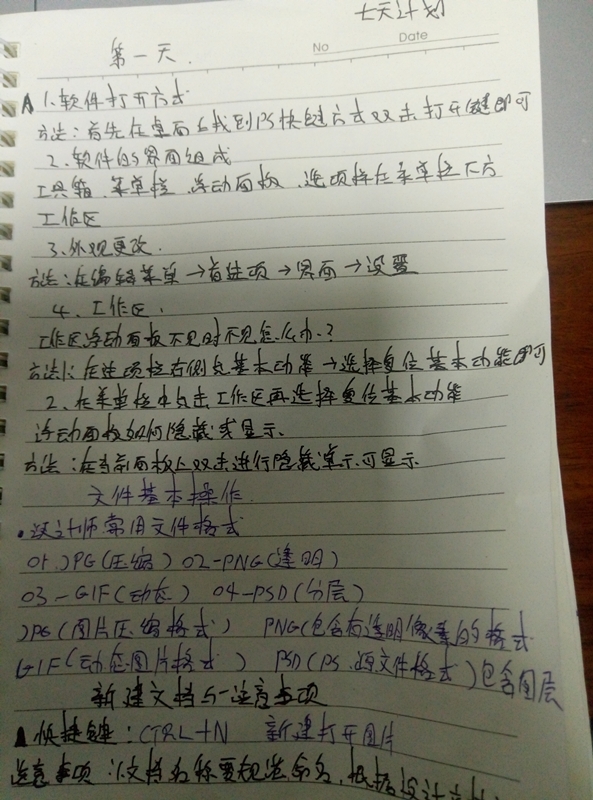 七天计划
No
Date
第一天.
1.软件打开方式
方法:首先在桌面上找到PS快键方式双击打开键即可
2.软件的界面组成
工具箱.菜单栏.浮动面板.选项择在菜单栏下方
工作区
3.外观更改.
方法:在编辑菜单→首选项→界面→设置
4.工作区.
工作区浮动面板不见时不见怎么办.?
方法1:在选项栏右侧点基本功能→选择复位基本功能即可
2.在菜单栏中点击工作区再选择复位基本功能
浮动面板如何隐藏或显示.
方法:在当前面板上双击进行隐藏单示可显示
文件基本操作.
·设计师常用文件格式
01.JPG(压缩)02-PNG(透明)
03-GIF(动态)04-PSD(分层)
JPG(图片压缩格式) PNG(包含有透明像素的格式
GIF(动态图片格式) PSD(PS.源文件格式)包含图层
新建文档与注意事项
快捷键:CTRL+N 新建打开图片
注意事项:1.文档名称要规范命名,根据设计